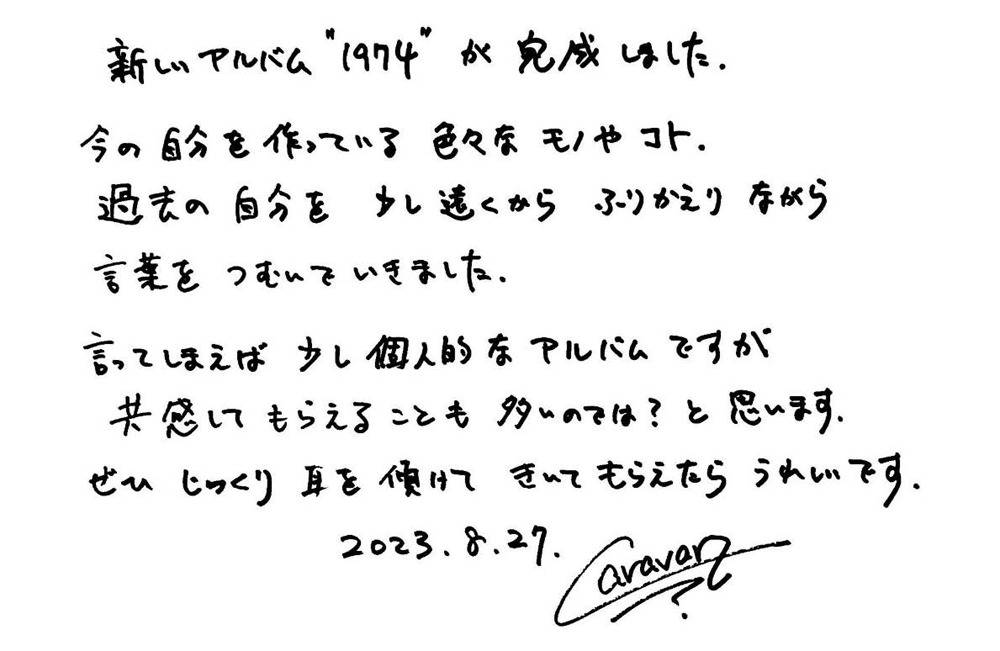 新しいアルバム"1974"が完成しました.
今の自分を作っている色々なモノやコト.
過去の自分を少し遠くからふりかえりながら
言葉をつむいでいきました.
言ってしまえば少し個人的なアルバムですが
共感してもらえることも多いのでは?と思います.
ぜひじっくり耳を傾けてきいてもらえたらうれしいです.
2023.8.27.
Caravan